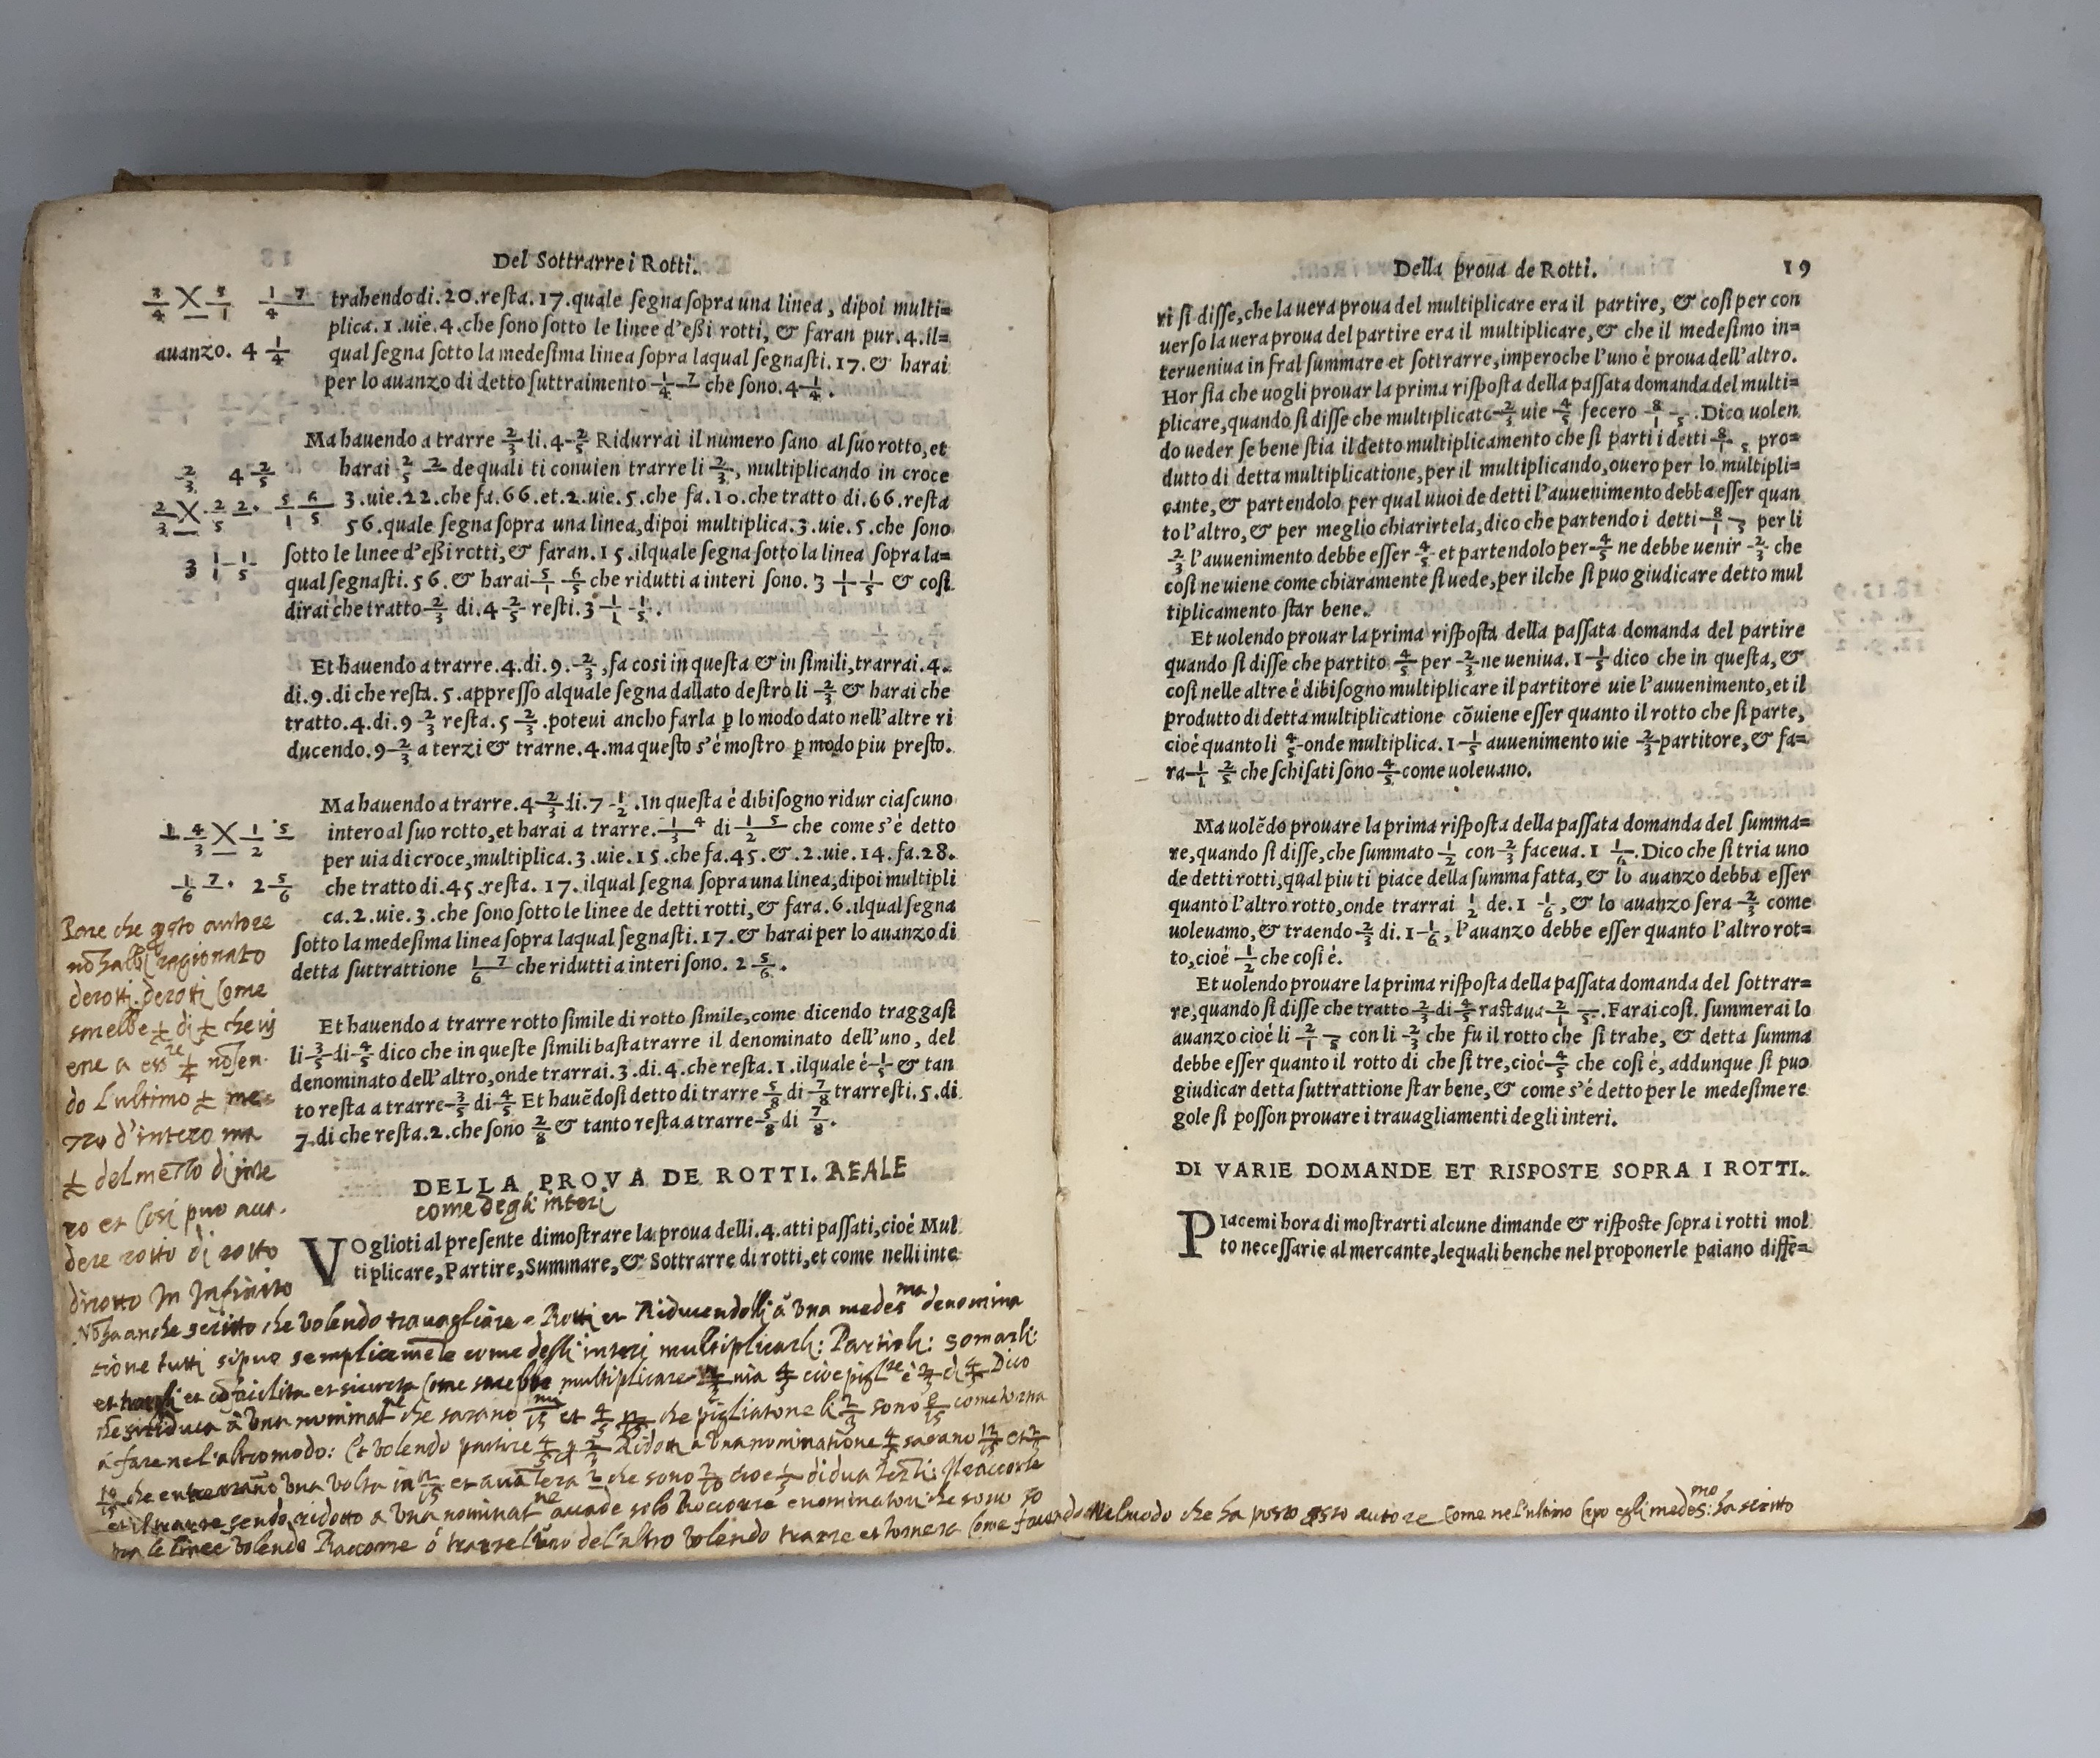 Del Sottrarre i Rotti.
3/4 X 5/1 17/4
auanzo. 4 1/4
trahendo di. 20. resta. 17. quale segna sopra una linea, dipoi multi=
plica. 1. uie. 4. che sono sotto le linee d'eßi rotti, & faran pur. 4. il=
qual segna sotto la medesima linea sopra laqual segnasti. 17. & harai
per lo auanzo di detto suttraimento 17/4 che sono. 4 1/4.
Ma hauendo a trarre 2/3 di. 4 2/5 Ridurrai il numero sano al suo rotto, et
2/3 4 2/5
harai 22/5 de quali ti conuien trarre li 2/3, multiplicando in croce
2/3 X 22/5. 56/15
3. uie. 22. che fa. 66. et. 2. uie. 5. che fa. 10. che tratto di. 66. resta
56. quale segna sopra una linea, dipoi multiplica. 3. uie. 5. che sono
3 11/15
sotto le linee d'eßi rotti, & faran. 15. ilquale segna sotto la linea sopra la=
qual segnasti. 56. & harai 56/15 che ridutti a interi sono. 3 11/15 & cosi
dirai che tratto 2/3 di. 4 2/5 resti. 3 11/15.
Et hauendo a trarre. 4. di. 9. 2/3, fa cosi in questa & in simili, trarrai. 4.
di. 9. di che resta. 5. appresso alquale segna dallato destro li 2/3 & harai che
tratto. 4. di. 9 2/3 resta. 5 2/3. poteui ancho farla ꝑ lo modo dato nell'altre ri
ducendo. 9 2/3 a terzi & trarne. 4. ma questo s'é mostro ꝑ modo piu presto.
Ma hauendo a trarre. 4 2/3 di. 7 1/2. In questa é dibisogno ridur ciascuno
14/3 X 15/2
intero al suo rotto, et harai a trarre. 14/3 di 15/2 che come s'é detto
per uia di croce, multiplica. 3. uie. 15. che fa. 45. &. 2. uie. 14. fa. 28.
17/6. 2 5/6
che tratto di. 45. resta. 17. ilqual segna sopra una linea, dipoi multipli
ca. 2. uie. 3. che sono sotto le linee de detti rotti, & fara. 6. ilqual segna
sotto la medesima linea sopra laqual segnasti. 17. & harai per lo auanzo di
detta suttrattione 17/6 che ridutti a interi sono. 2 5/6.
Et hauendo a trarre rotto simile di rotto simile, come dicendo traggasi
li 3/5 di 4/5 dico che in queste simili basta trarre il denominato dell'uno, del
denominato dell'altro, onde trarrai. 3. di. 4. che resta. 1. ilquale é 1/5 & tan
to resta a trarre 3/5 di 4/5 Et hauẽdosi detto di trarre 5/8 di 7/8 trarresti. 5. di
7. di che resta. 2. che sono 2/8 & tanto resta a trarre 5/8 di 7/8.
DELLA PROVA DE ROTTI. REALE
come degli interi
VOglioti al presente dimostrare la proua delli. 4. atti passati, cioé Mul
tiplicare, Partire, Summare, & Sottrarre di rotti, et come nelli inte
Pare che autore
ragionato
de rotti come
sarebbe 1/2 di 1/2 che
ene a 1/4
do L'ultimo 1/2 me
zzo d'intero ma
1/2 del mezzo di inte
ro et Cosi puo
dere rotto di rotto
di rotto In Infinito
anche scritto che volendo travagliare Rotti et Riducendoli à una medesma denomina
tione tutti si puo semplicemente come degli interi multiplicarli: Partirli: somarli:
Come sarebbe multiplicare 2/3 uia 4/5 cioe 2/3 di 4/5 Dico
à una che sarano et 4/5 che pigliatone li 2/3 sono 8/15 come torna
à fare nel altro modo: Et volendo partire 4/5 2/3 à una nominatione 4/5 sarano 12/15 et 2/3
10/15 che una volta in 12/15 et 2 che sono 2/10 cioe 1/5 di dua
ridotto a una solo
le linee volendo Raccorre ó trarre l'uno del'altro volendo trarre et tornera Come nel modo che ha posto autore Come nel'ultimo egli medesmo: ha scritto
Della proua de Rotti. 19
ri si disse, che la uera proua del multiplicare era il partire, & cosi per con
uerso la uera proua del partire era il multiplicare, & che il medesimo in=
terueniua in fral summare et sottrarre, imperoche l'uno é proua dell'altro.
Hor sia che uogli prouar la prima risposta della passata domanda del multi=
plicare, quando si disse che multiplicato 2/3 uie 4/5 fecero 8/15. Dico uolen
do ueder se bene stia il detto multiplicamento che si parti i detti 8/15 pro=
dutto di detta multiplicatione, per il multiplicando, ouero per lo multipli=
cante, & partendolo per qual uuoi de detti l'auuenimento debba esser quan
to l'altro, & per meglio chiarirtela, dico che partendo i detti 8/15 per li
2/3 l'auuenimento debbe esser 4/5 et partendolo per 4/5 ne debbe uenir 2/3 che
cosi ne uiene come chiaramente si uede, per ilche si puo giudicare detto mul
tiplicamento star bene.
Et uolendo prouar la prima risposta della passata domanda del partire
quando si disse che partito 4/5 per 2/3 ne ueniua. 1 1/5 dico che in questa, &
cosi nelle altre é dibisogno multiplicare il partitore uie l'auuenimento, et il
produtto di detta multiplicatione cõuiene esser quanto il rotto che si parte,
cioé quanto li 4/5 onde multiplica. 1 1/5 auuenimento uie 2/3 partitore, & fa=
ra 12/15 che schisati sono 4/5 come uoleuano.
Ma uolẽdo prouare la prima risposta della passata domanda del summa=
re, quando si disse, che summato 1/2 con 2/3 faceua. 1 1/6. Dico che si tria uno
de detti rotti, qual piu ti piace della summa fatta, & lo auanzo debba esser
quanto l'altro rotto, onde trarrai 1/2 de. 1 1/6, & lo auanzo sera 2/3 come
uoleuamo, & traendo 2/3 di. 1 1/6, l'auanzo debbe esser quanto l'altro rot=
to, cioé 1/2 che cosi é.
Et uolendo prouare la prima risposta della passata domanda del sottrar=
re, quando si disse che tratto 2/3 di 4/5 rastaua 2/15. Farai cosi. summerai lo
auanzo cioé li 2/15 con li 2/3 che fu il rotto che si trahe, & detta summa
debbe esser quanto il rotto di che si tre, cioé 4/5 che cosi é, addunque si puo
giudicar detta suttrattione star bene, & come s'é detto per le medesime re
gole si posson prouare i trauagliamenti degli interi.
DI VARIE DOMANDE ET RISPOSTE SOPRA I ROTTI.
PIacemi hora di mostrarti alcune dimande & risposte sopra i rotti mol
to necessarie al mercante, lequali benche nel proponerle paiano diffe=